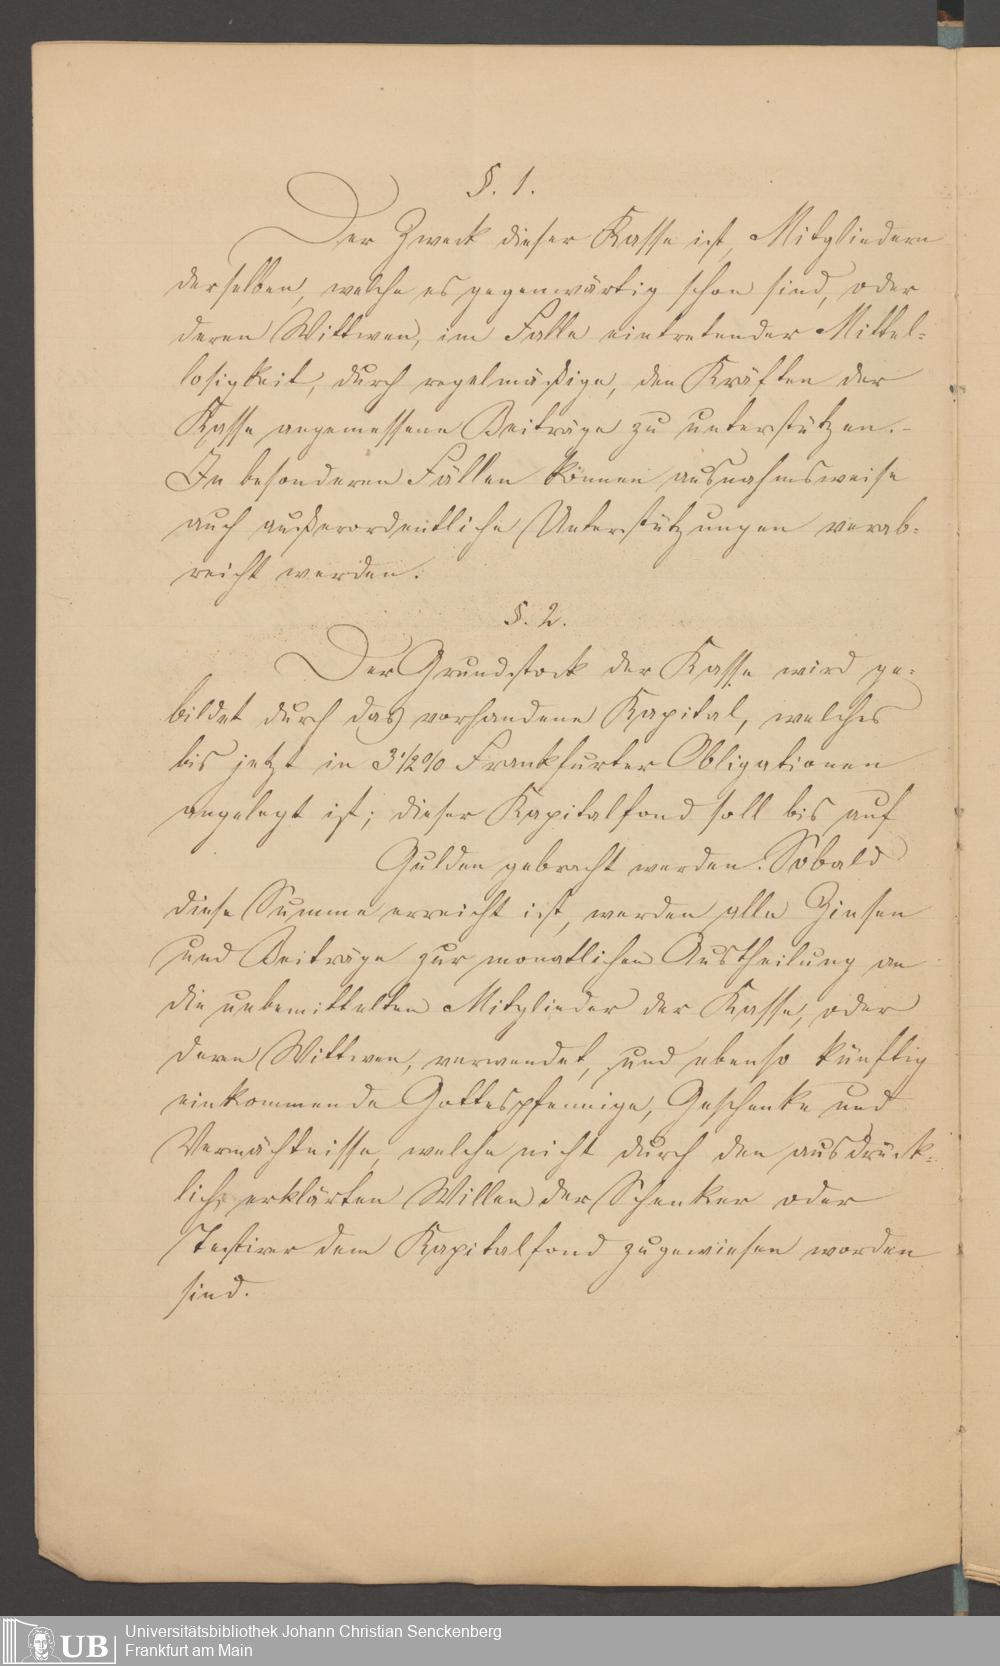 §. 1.
Der Zweck dieser Kasse ist, Mitgliedern
derselben, welche es gegenwärtig schon sind, oder
deren Wittwen, im Falle eintretender Mittel-
losigkeit, durch regelmäßige, den Kräften der
Kasse angemessene Beiträge zu unterstützen.-
In besonderen Fällen können ausnahmsweise
auch außerordentliche Unterstützungen verab-
reicht werden.
§. 2.
Der Grundstock der Kasse wird ge-
bildet durch das vorhandene Kapital, welches
bis jetzt in 3 1/2 % Frankfurter Obligationen
angelegt ist; dieser Kapitalfond soll bis auf
Gulden gebracht werden. Sobald
diese Summe erreicht ist, werden alle Zinsen
und Beiträge zur monatlichen Austheilung an
die unbemittelten Mitglieder der Kasse, oder
deren Wittwen, verwendet, und ebenso künftig
einkommende Gottespfennige, Geschenke und
Vermächtnisse, welche nicht durch den ausdrück-
lich erklärten Willen der Schenker oder
Testirer dem Kapitalfond zugewiesen worden
sind.
UB
Universitätsbibliothek Johann Christian Senckenberg
Frankfurt am Main